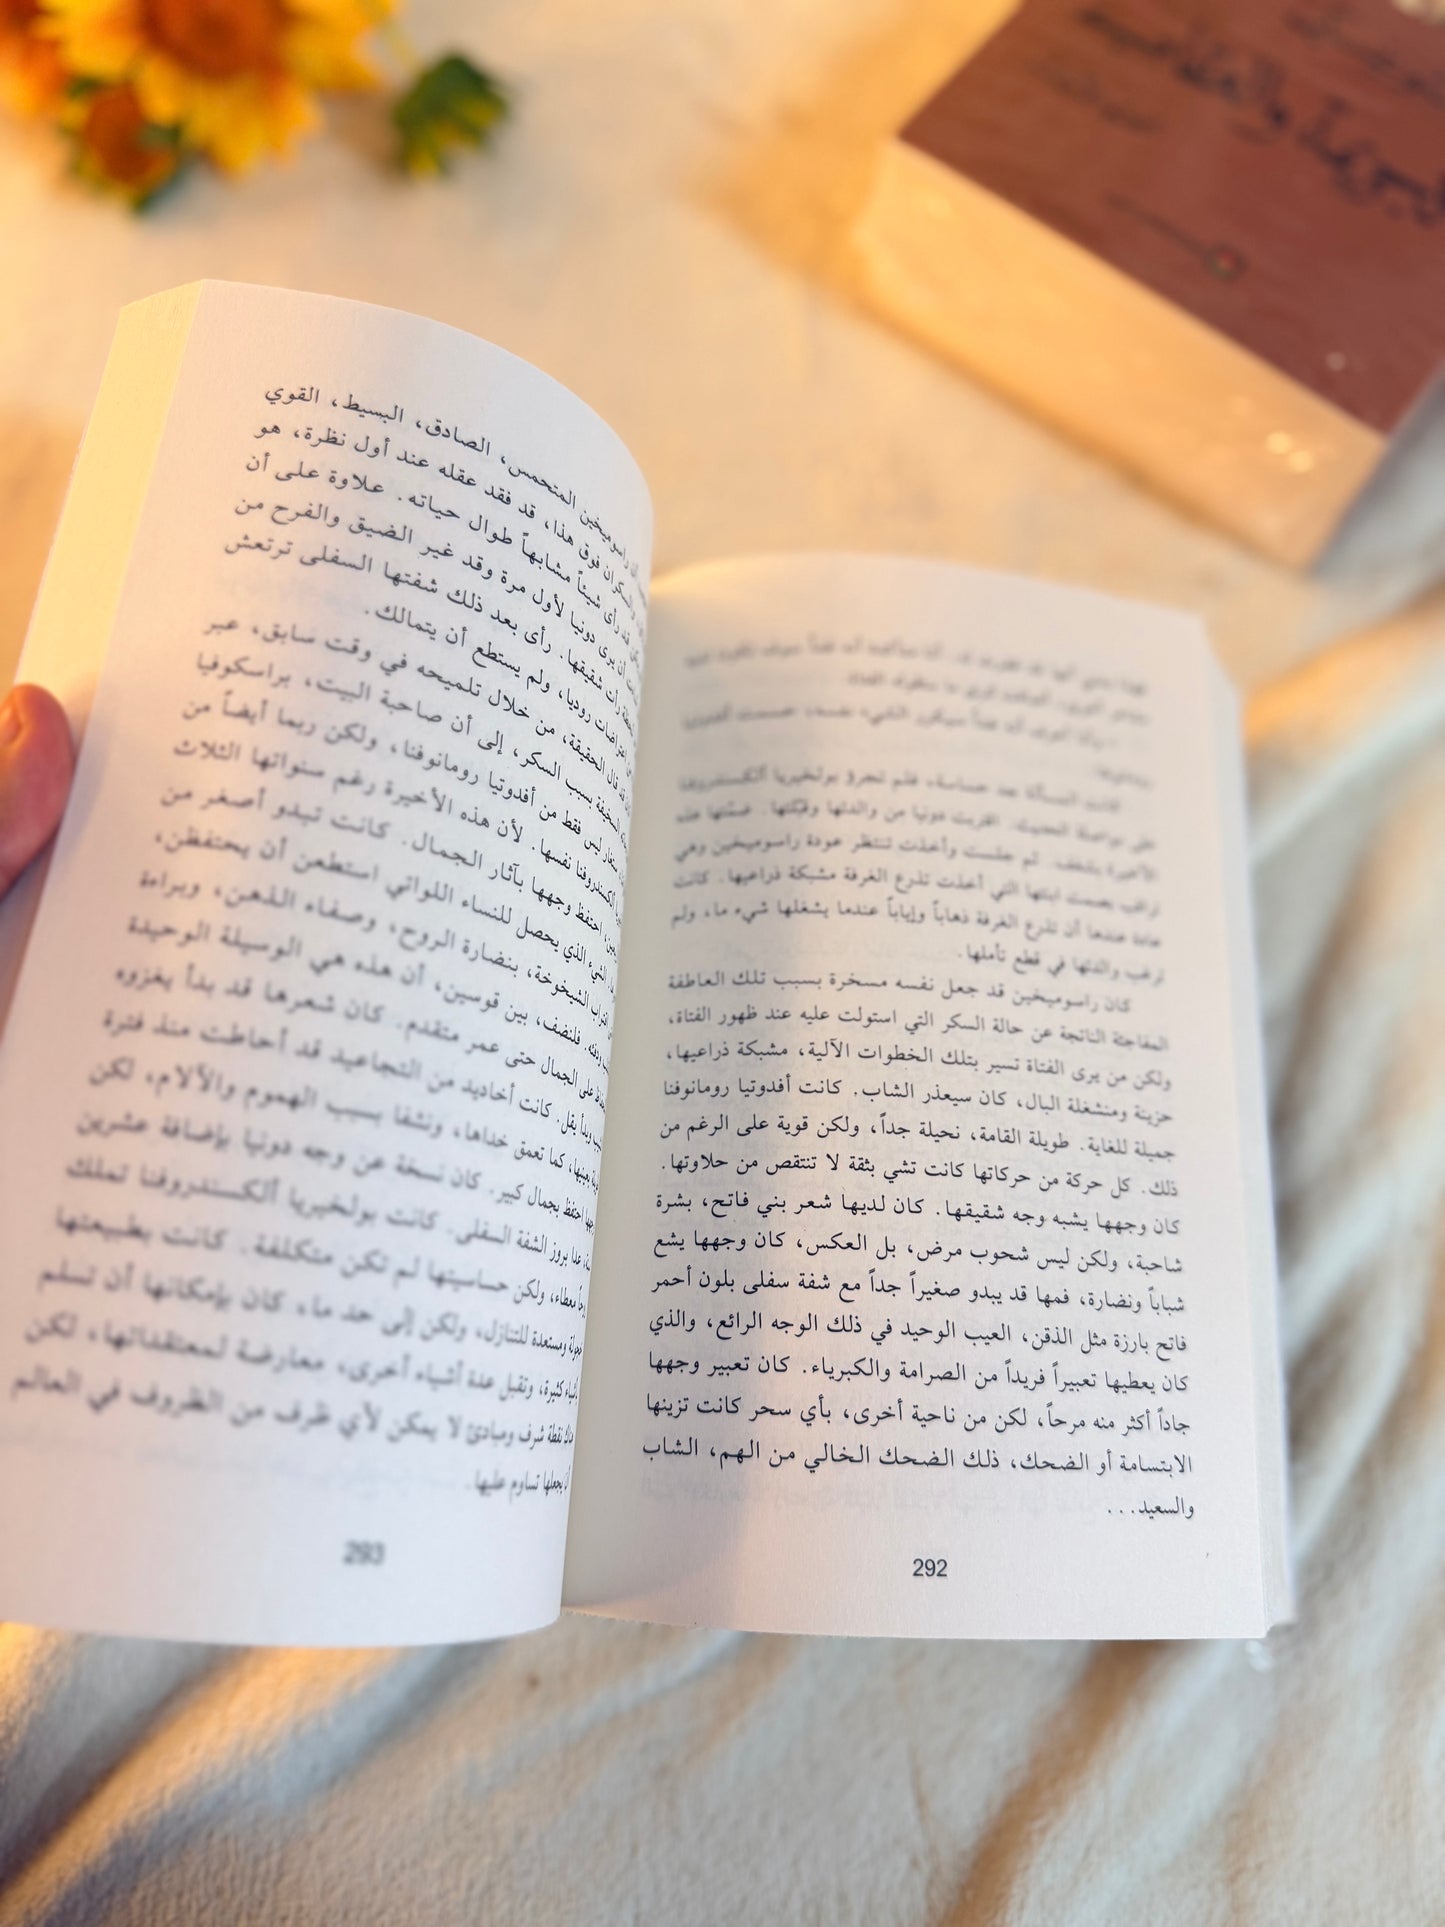 الجريمة والعقاب
كانت المسألة جد حساسة، فلم تجرؤ بولخيريا ألكسندروفنا
على مواصلة الحديث. اقتربت دونيا من والدتها وقبّلتها. ضمّتها هذه
الأخيرة بشغف. ثم جلست وأخذت تنتظر عودة راسوميخين وهي
تراقب بصمت ابنتها التي أخذت تذرع الغرفة مشبكة ذراعيها. كانت
عادة عندها أن تذرع الغرفة ذهاباً وإياباً عندما يشغلها شيء ما، ولم
ترغب والدتها في قطع تأملها.
كان راسوميخين قد جعل نفسه مسخرة بسبب تلك العاطفة
المفاجئة الناتجة عن حالة السكر التي استولت عليه عند ظهور الفتاة،
ولكن من يرى الفتاة تسير بتلك الخطوات الآلية، مشبكة ذراعيها،
حزينة ومنشغلة البال، كان سيعذر الشاب. كانت أفدوتيا رومانوفنا
جميلة للغاية. طويلة القامة، نحيلة جداً، ولكن قوية على الرغم من
ذلك. كل حركة من حركاتها كانت تشي بثقة لا تنتقص من حلاوتها.
كان وجهها يشبه وجه شقيقها. كان لديها شعر بني فاتح، بشرة
شاحبة، ولكن ليس شحوب مرض، بل العكس، كان وجهها يشع
شباباً ونضارة، فمها قد يبدو صغيراً جداً مع شفة سفلى بلون أحمر
فاتح بارزة مثل الذقن، العيب الوحيد في ذلك الوجه الرائع، والذي
كان يعطيها تعبيراً فريداً من الصرامة والكبرياء. كان تعبير وجهها
جاداً أكثر منه مرحاً، لكن من ناحية أخرى، بأي سحر كانت تزينها
الابتسامة أو الضحك، ذلك الضحك الخالي من الهم، الشاب
والسعيد...
292
راسوميخين المتحمس، الصادق، البسيط، القوي
والسكران فوق هذا، قد فقد عقله عند أول نظرة، هو
قد رأى شيئاً مشابهاً طوال حياته. علاوة على أن
أن يرى دونيا لأول مرة وقد غير الضيق والفرح من
رأت شقيقها. رأى بعد ذلك شفتها السفلى ترتعش
اعتراضات روديا، ولم يستطع أن يتمالك.
قد قال الحقيقة، من خلال تلميحه في وقت سابق، عبر
السخيفة بسبب السكر، إلى أن صاحبة البيت، براسكوفيا
ستغار ليس فقط من أفدوتيا رومانوفنا، ولكن ربما أيضاً من
ألكسندروفنا نفسها. لأن هذه الأخيرة رغم سنواتها الثلاث
احتفظ وجهها بآثار الجمال. كانت تبدو أصغر من
الشيء الذي يحصل للنساء اللواتي استطعن أن يحتفظن،
اقتراب الشيخوخة، بنضارة الروح، وصفاء الذهن، وبراءة
ودفئه. فلنضف، بين قوسين، أن هذه هي الوسيلة الوحيدة
على الجمال حتى عمر متقدم. كان شعرها قد بدأ يغزوه
وبدأ يقل. كانت أخاديد من التجاعيد قد أحاطت منذ فترة
بعينيها، كما تعمق خداها، ونشفا بسبب الهموم والآلام، لكن
وجهها احتفظ بجمال كبير. كان نسخة عن وجه دونيا بإضافة عشرين
عدا بروز الشفة السفلى. كانت بولخيريا ألكسندروفنا تملك
روحاً معطاء، ولكن حساسيتها لم تكن متكلفة. كانت بطبيعتها
خجولة ومستعدة للتنازل، ولكن إلى حد ما، كان بإمكانها أن تسلم
بأشياء كثيرة، وتقبل عدة أشياء أخرى، معارضة لمعتقداتها، لكن
هناك نقطة شرف ومبادئ لا يمكن لأي ظرف من الظروف في العالم
أن يجعلها تساوم عليها.
293